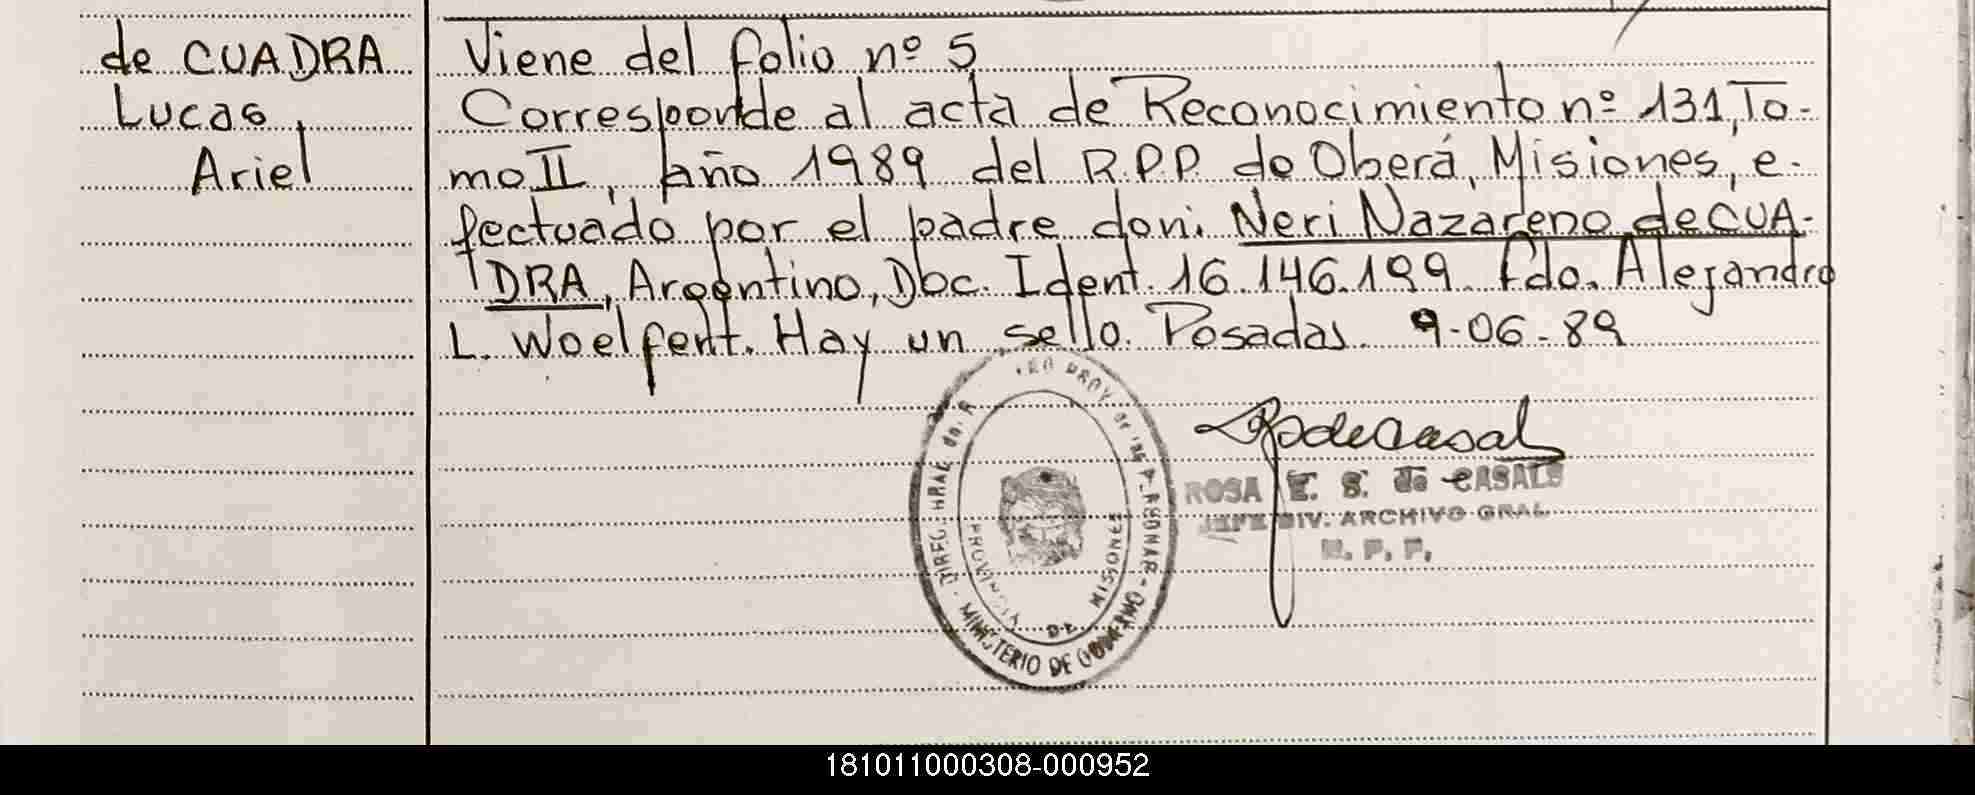 de CUADRA
Lucas,
Ariel
Viene del folio nº 5
Corresponde al acta de Reconocimiento nº 131, To-
mo II, año 1989 del R.P.P. de Oberá, Misiones, e-
fectuado por el padre don: Neri Nazareno de CUA-
DRA, Argentino, Doc. Ident. 16.146.199. Fdo. Alejandro
L. Woelfert. Hay un sello. Posadas 9-06-89
PROVINCIA DE MISIONES
MINISTERIO DE GOBIERNO
ROSA E. S. de CASALS
JEFE DIV. ARCHIVO GRAL.
R. P. P.
181011000308-000952